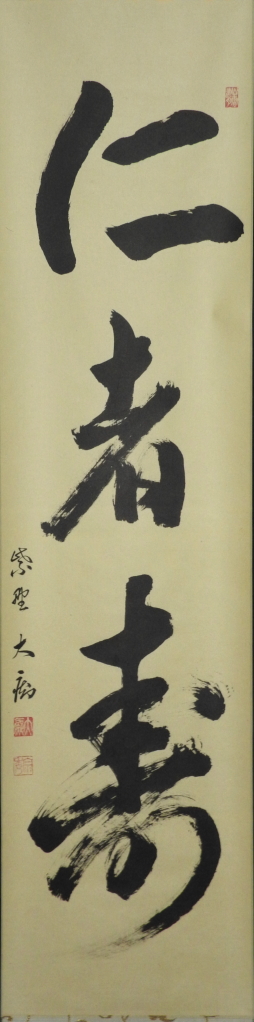 仁者寿
紫野 大